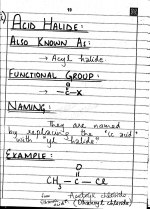 19
ACID HALIDE:
ALSO KNOWN AS:
→ Acyl halide.
FUNCTIONAL GROUP:
O
→ - C - X
NAMING:
They are named
by replacing the "ic acid"
with "yl halide"
EXAMPLE:
O
CH3 - C - Cl
Acetyl chloride
(Ethanoyl chloride)